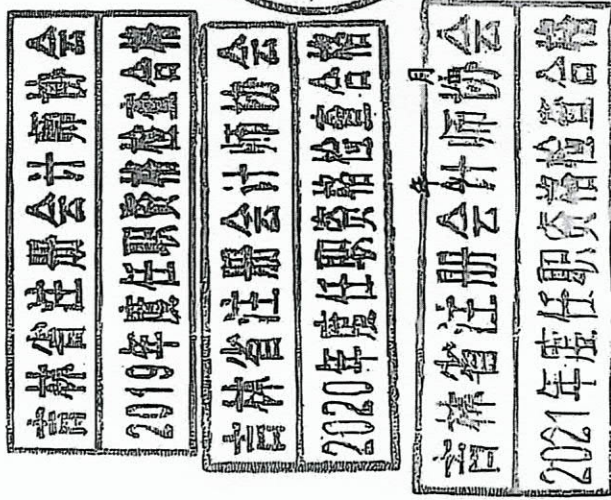 吉林省注册会计师协会
2019年度任职资格检查合格
吉林省注册会计师协会
2020年度任职资格检查合格
吉林省注册会计师协会
2021年度任职资格检查合格
年 月